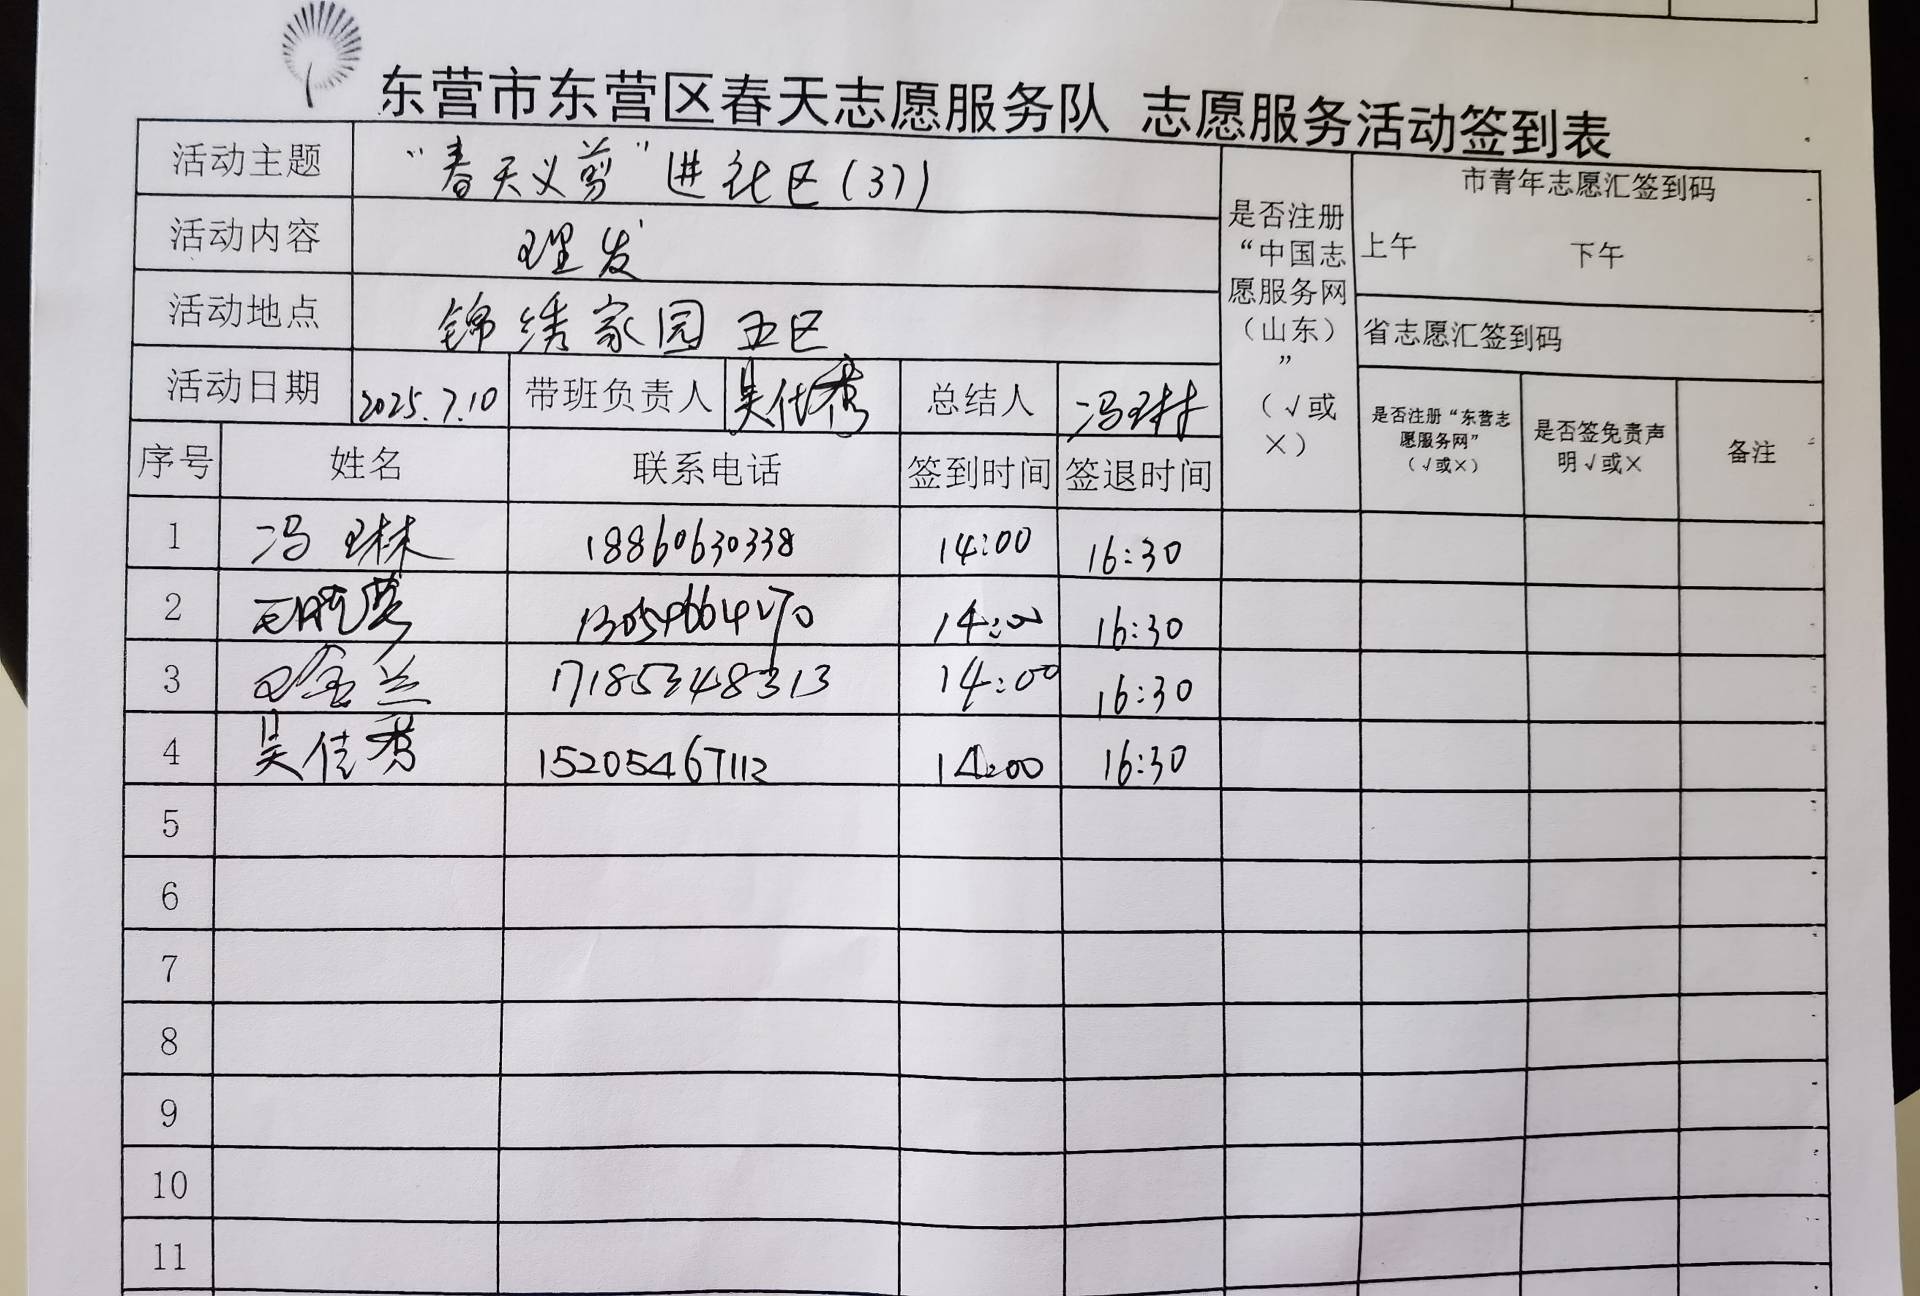 东营市东营区春天志愿服务队 志愿服务活动签到表
活动主题 “春天义剪”进社区(37)
活动内容 理发
活动地点 锦绣家园五区
活动日期 2025.7.10 带班负责人 吴佳秀 总结人 冯琳
是否注册“中国志愿服务网（山东）”（√或×）
市青年志愿汇签到码
上午 下午
省志愿汇签到码
是否注册“东营志愿服务网”（√或×） 是否签免责声明√或× 备注
序号 姓名 联系电话 签到时间 签退时间
1 冯琳 18860630338 14:00 16:30
2 14:00 16:30
3 金兰 17185348313 14:00 16:30
4 吴佳秀 15205467112 14:00 16:30
5
6
7
8
9
10
11